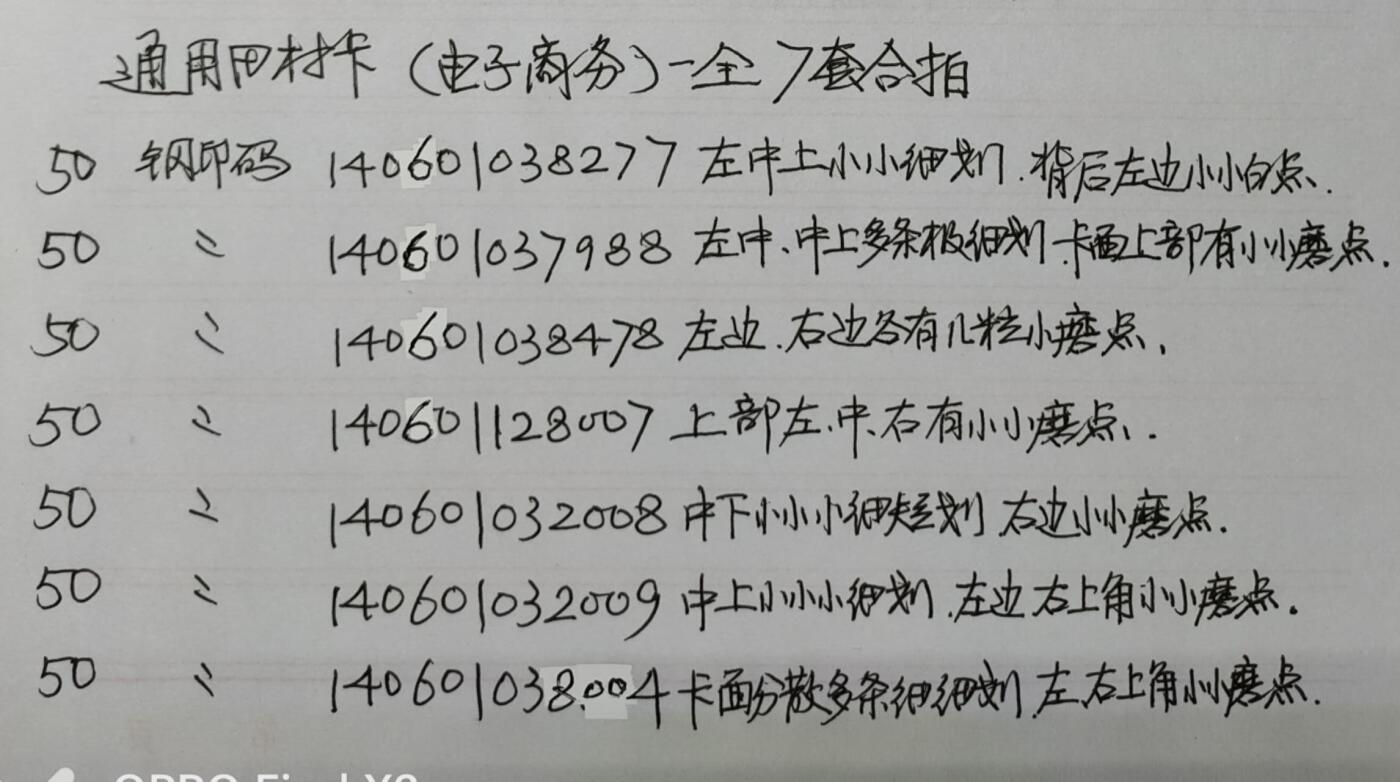 通用田村卡（电子商务）一全7套合拍
50 钢印码 140601038277 左中上小小细划.背后左边小小白点.
50 〃 140601037988 左中、中上多条极细划.卡面上部有小小磨点.
50 〃 140601038478 左边.右边各有几粒小磨点.
50 〃 140601128007 上部左.中.右有小小磨点.
50 〃 140601032008 中下小小小细短划 右边小小磨点.
50 〃 140601032009 中上小小小细划.左边右上角小小磨点.
50 〃 140601038004 卡面分散多条细细划.左.右上角小小磨点.